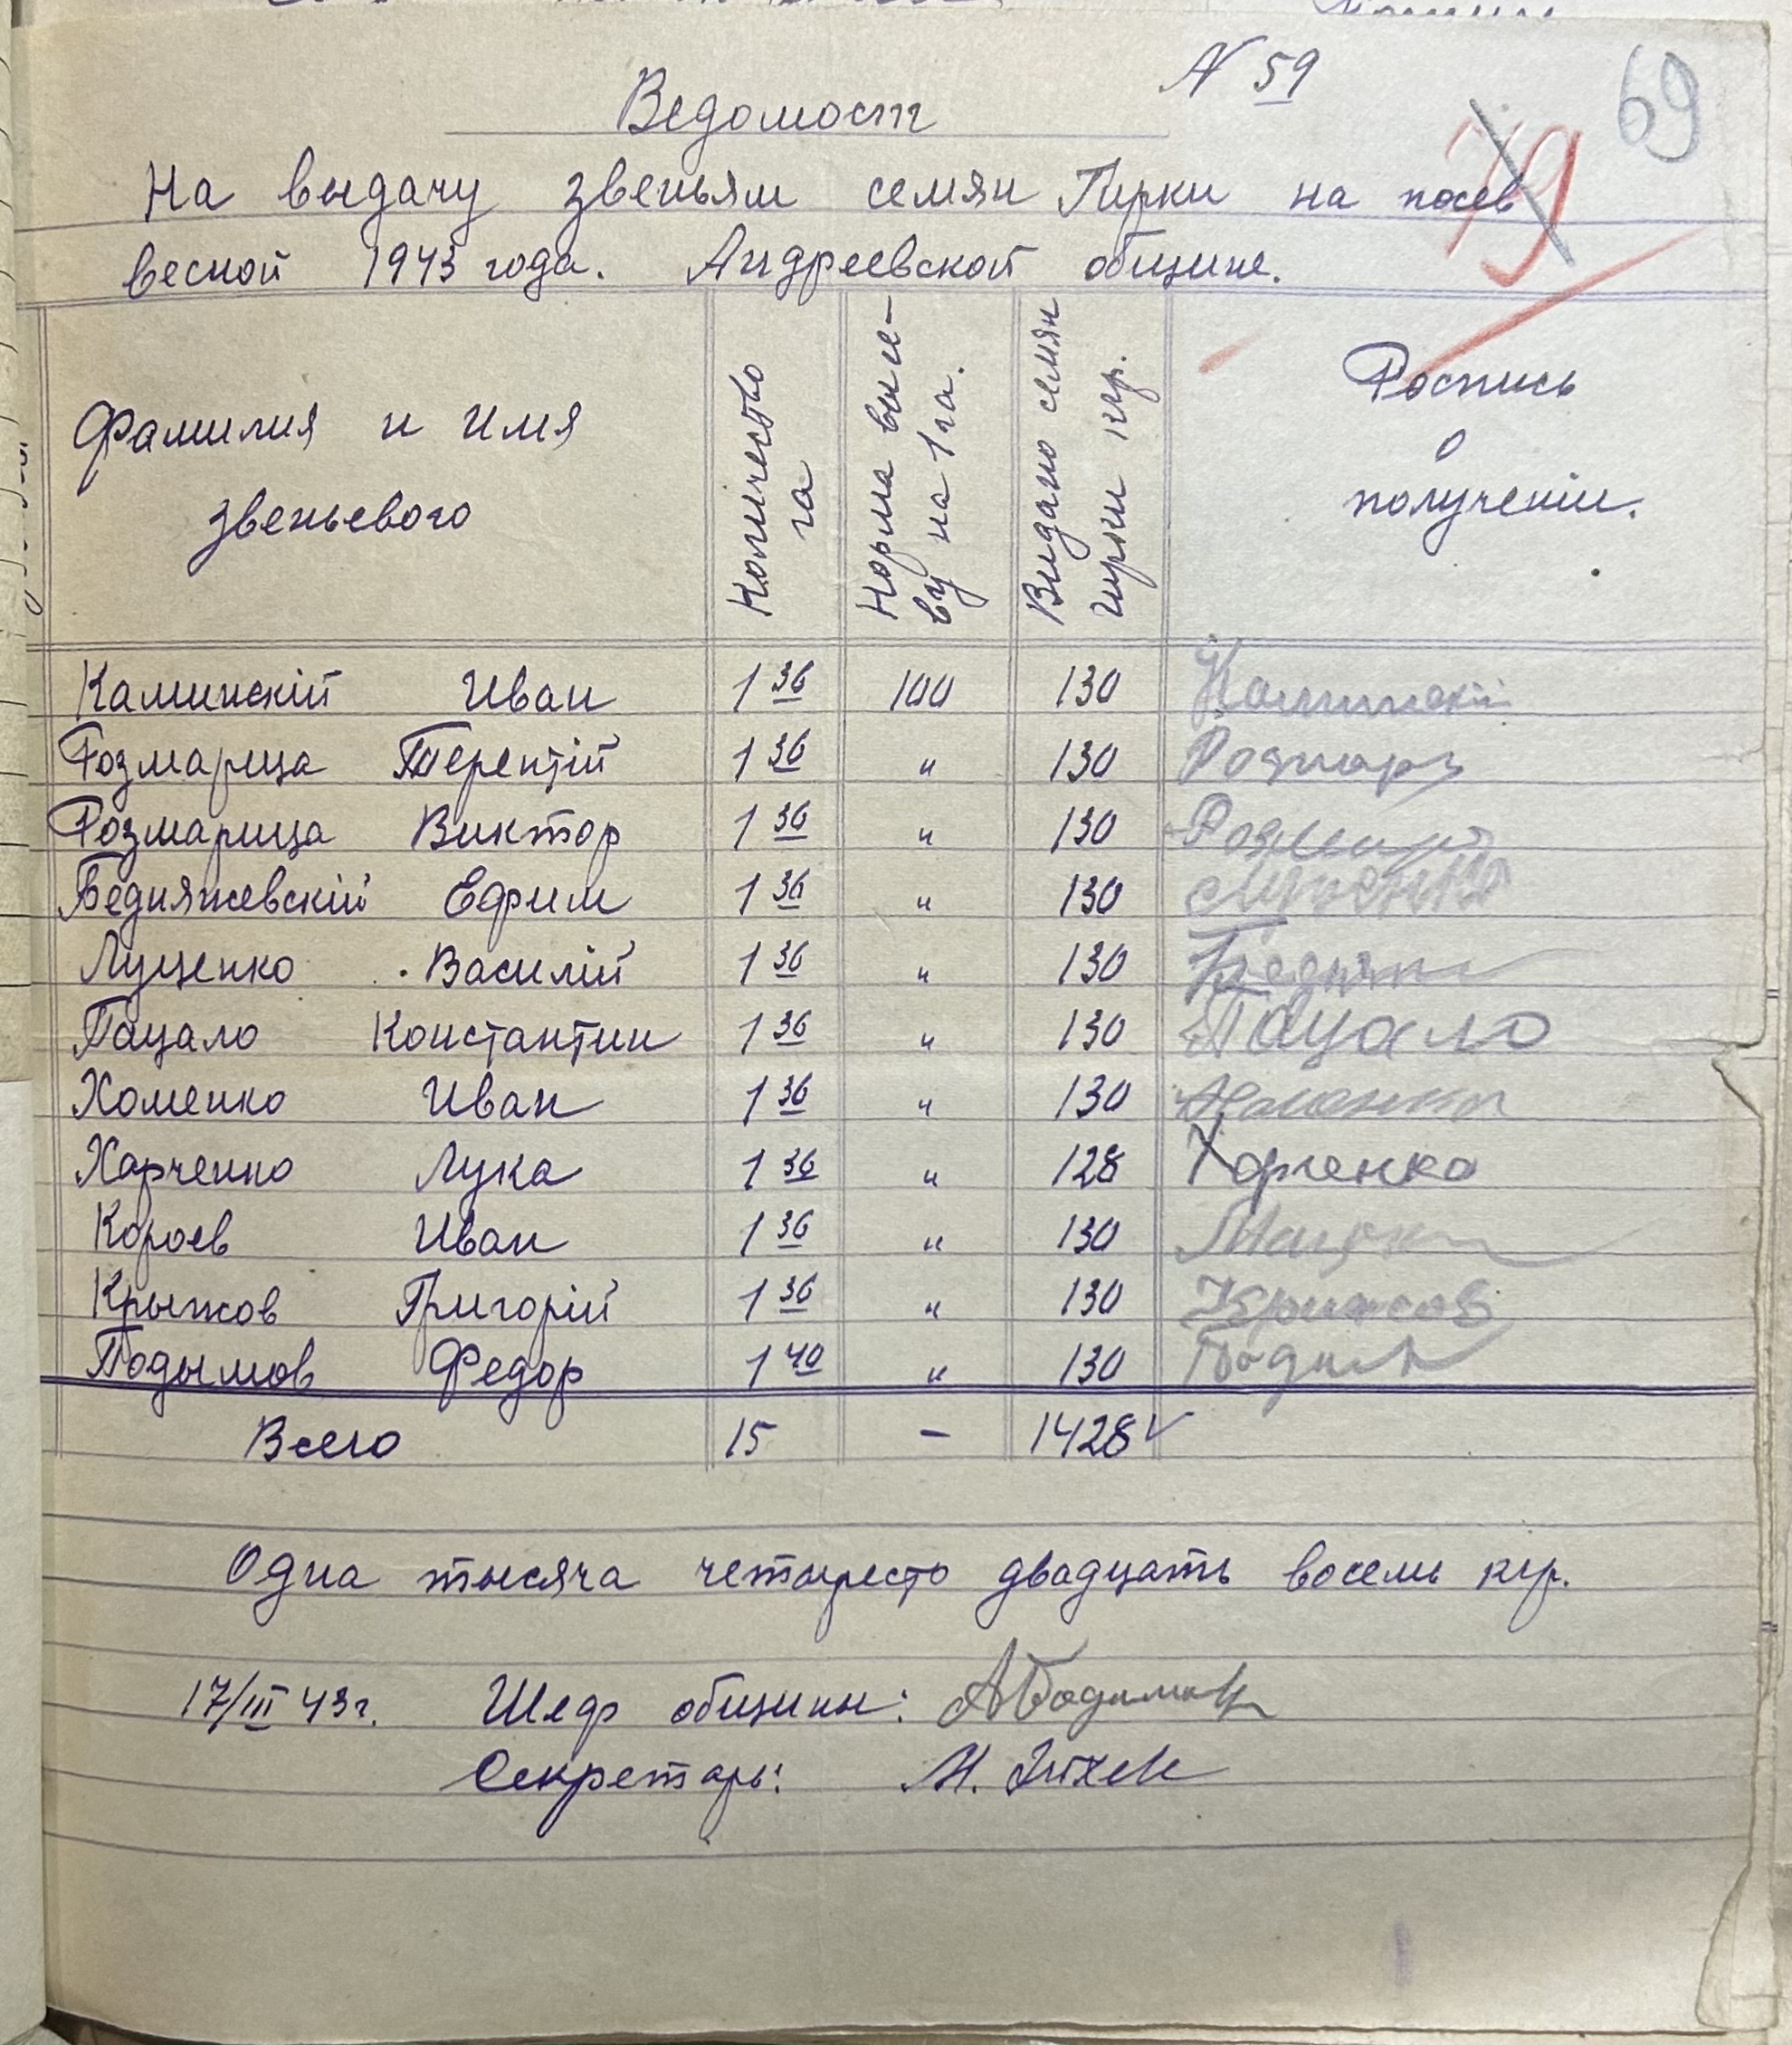 N 59
69
79
Ведомост
На выдачу звеньям семян Гирки на посев
весной 1943 года. Андреевской общине.
Фамилия и имя звеньевого | Количество га | Норма высе-ву на 1 га. | Видано семян гирки кгр. | Роспись о получении.
Каминскій Иван 1 36 100 130 Каминскій
Розмарица Терентій 1 36 " 130 Розмар
Розмарица Виктор 1 36 " 130
Бедняжевскій Ефим 1 36 " 130
Луценко Василій 1 36 " 130 Бедня
Пацало Константин 1 36 " 130 Пацало
Хоменко Иван 1 36 " 130
Харченко Лука 1 36 " 128 Харченко
Короев Иван 1 36 " 130
Крыжов Григорій 1 36 " 130 Крижов
Подымов Федор 1 40 " 130
Всего 15 – 1428
Одна тысяча четыресто двадцать восемь кгр.
17/III 43г. Шеф общины:
Секретарь: М.